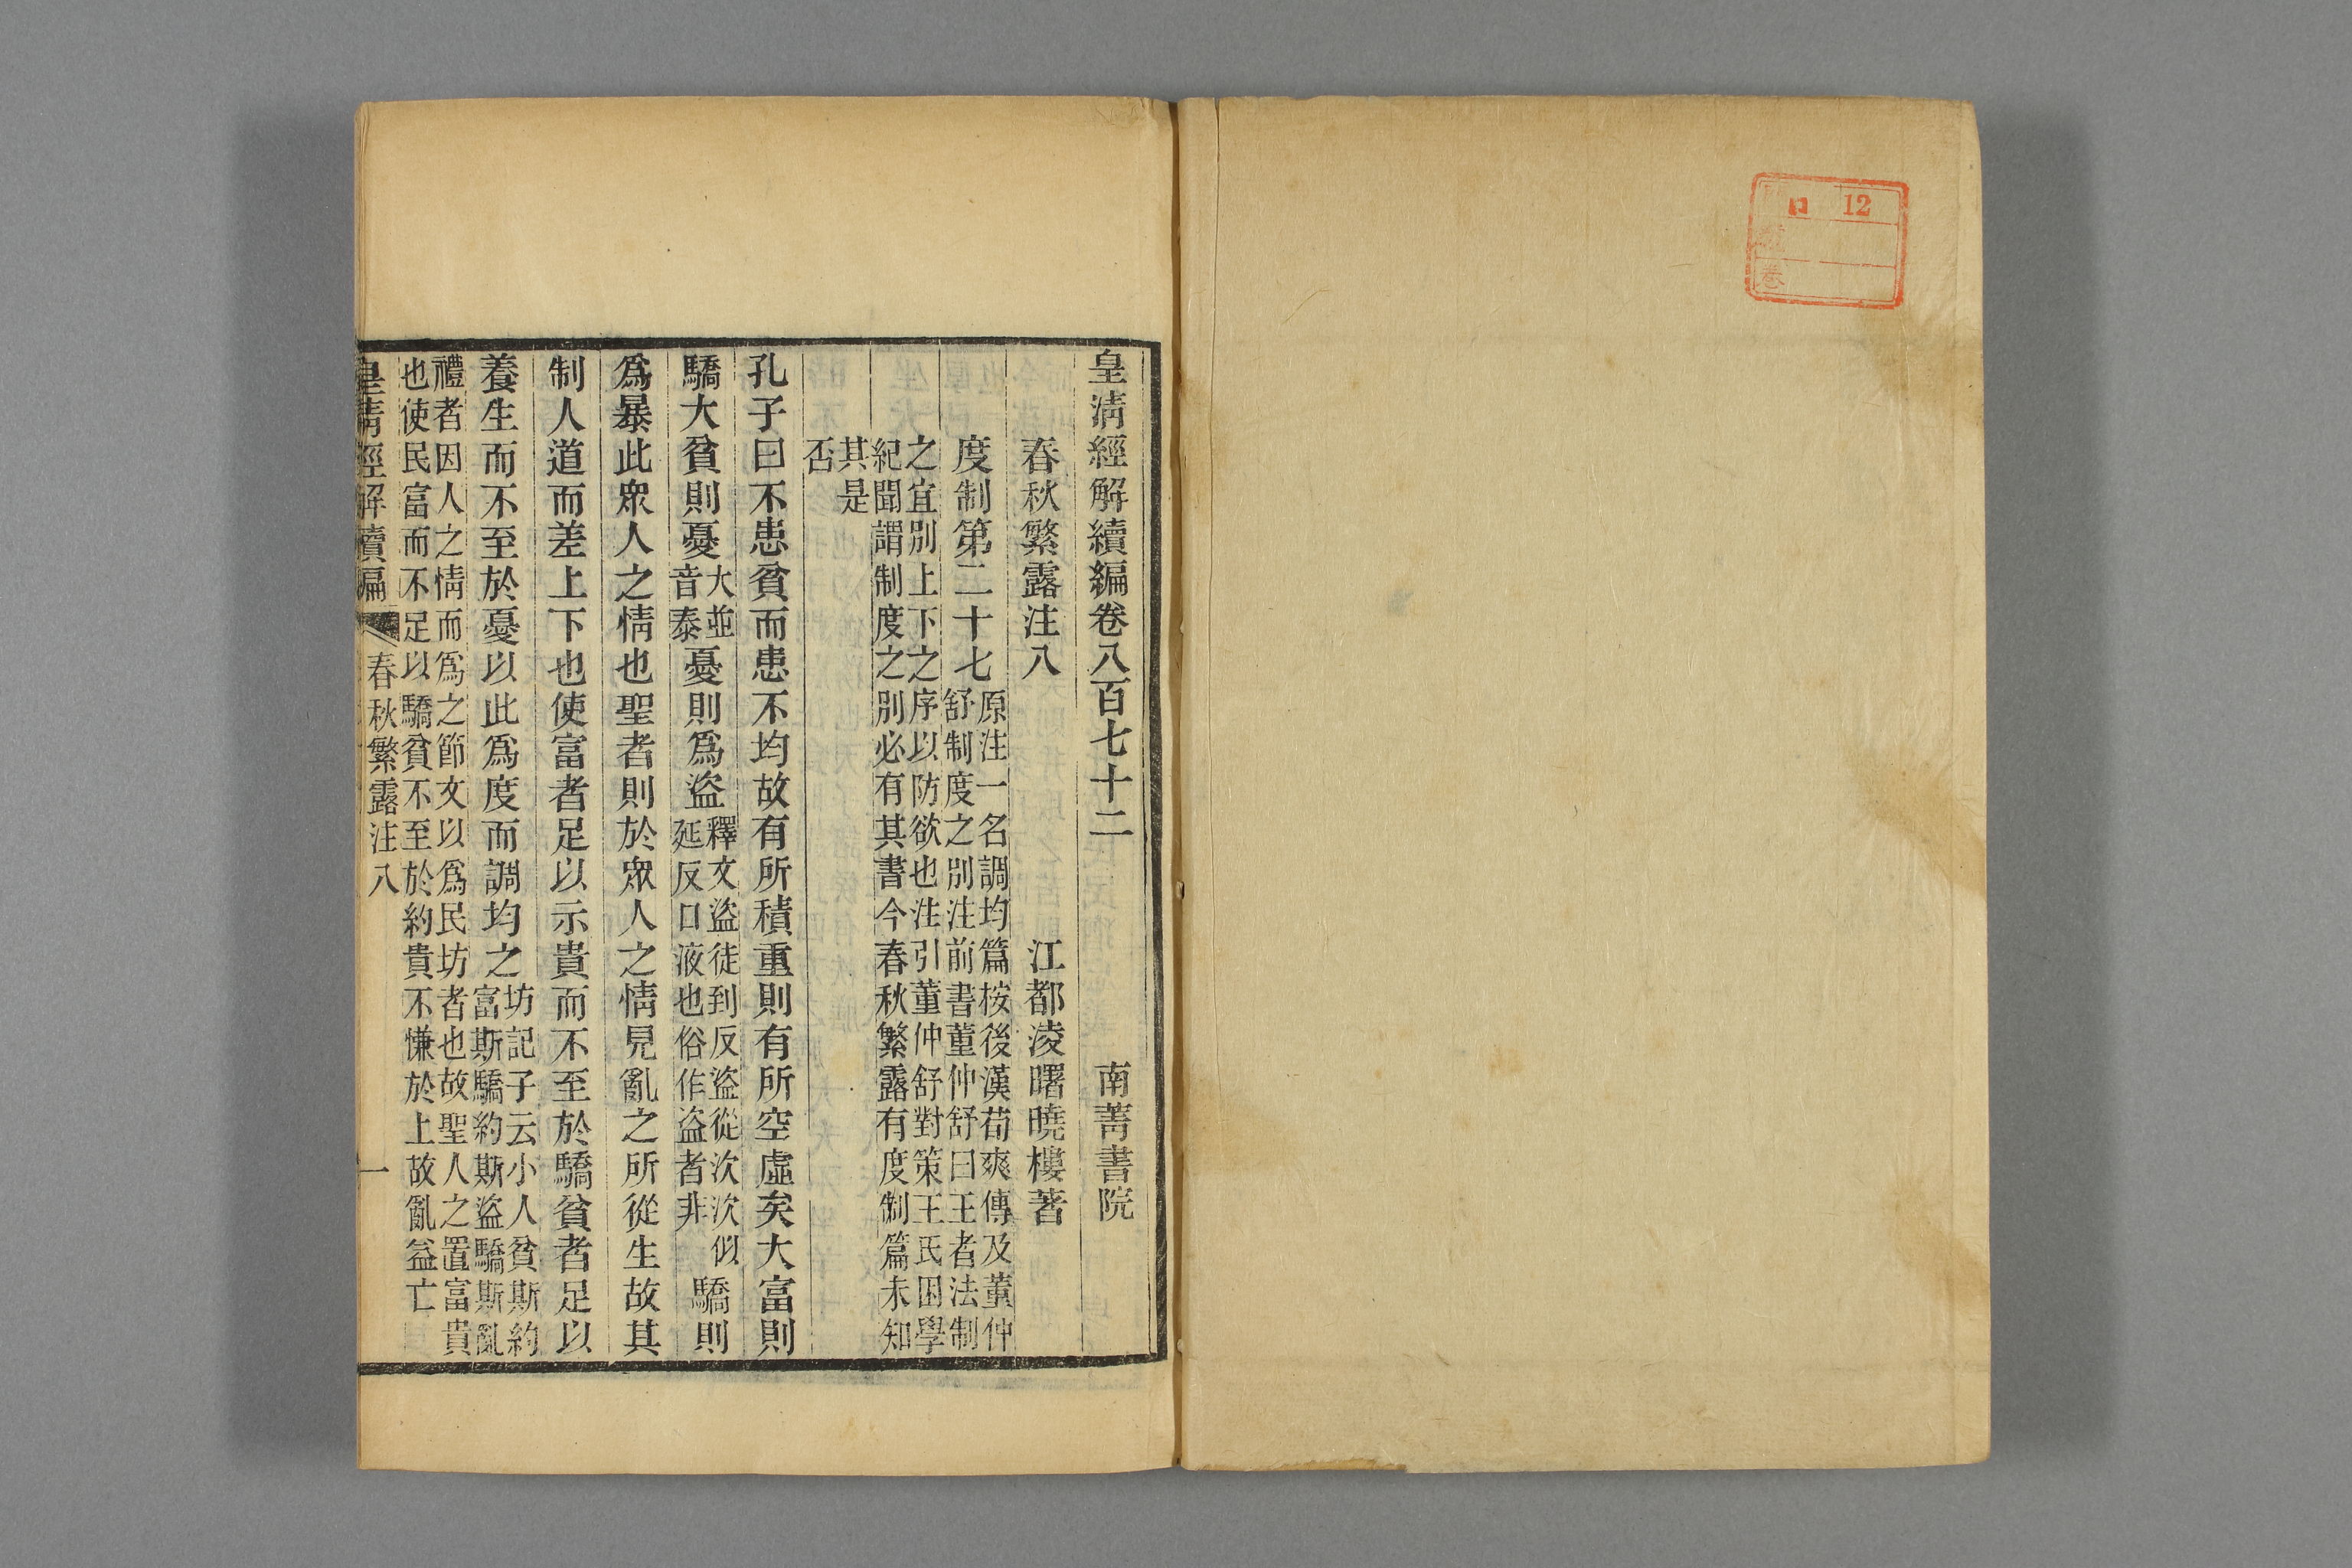 皇淸經解續編卷八百七十二
南菁書院
春秋繁露注八
江都凌曙曉樓著
度制第二十七
原注一名調均篇桉後漢荀爽傳及董仲
舒制度之別注前書董仲舒曰王者法制
之宜別上下之序以防欲也注引董仲舒對策王氏困學
紀聞謂制度之別必有其書今春秋繁露有度制篇未知
其是
否
孔子曰不患貧而患不均故有所積重則有所空虛矣大富則
驕大貧則憂
大並
音泰
憂則爲盜
釋文盜徒到反盜從㳄㳄似
延反口液也俗作盗者非
驕則
爲暴此衆人之情也聖者則於衆人之情見亂之所從生故其
制人道而差上下也使富者足以示貴而不至於驕貧者足以
養生而不至於憂以此爲度而調均之
坊記子云小人貧斯約
富斯驕約斯盜驕斯亂
禮者因人之情而爲之節文以爲民坊者也故聖人之置富貴
也使民富而不足以驕貧不至於約貴不慊於上故亂益亡
皇淸經解續編
春秋繁露注八
一
12
卷